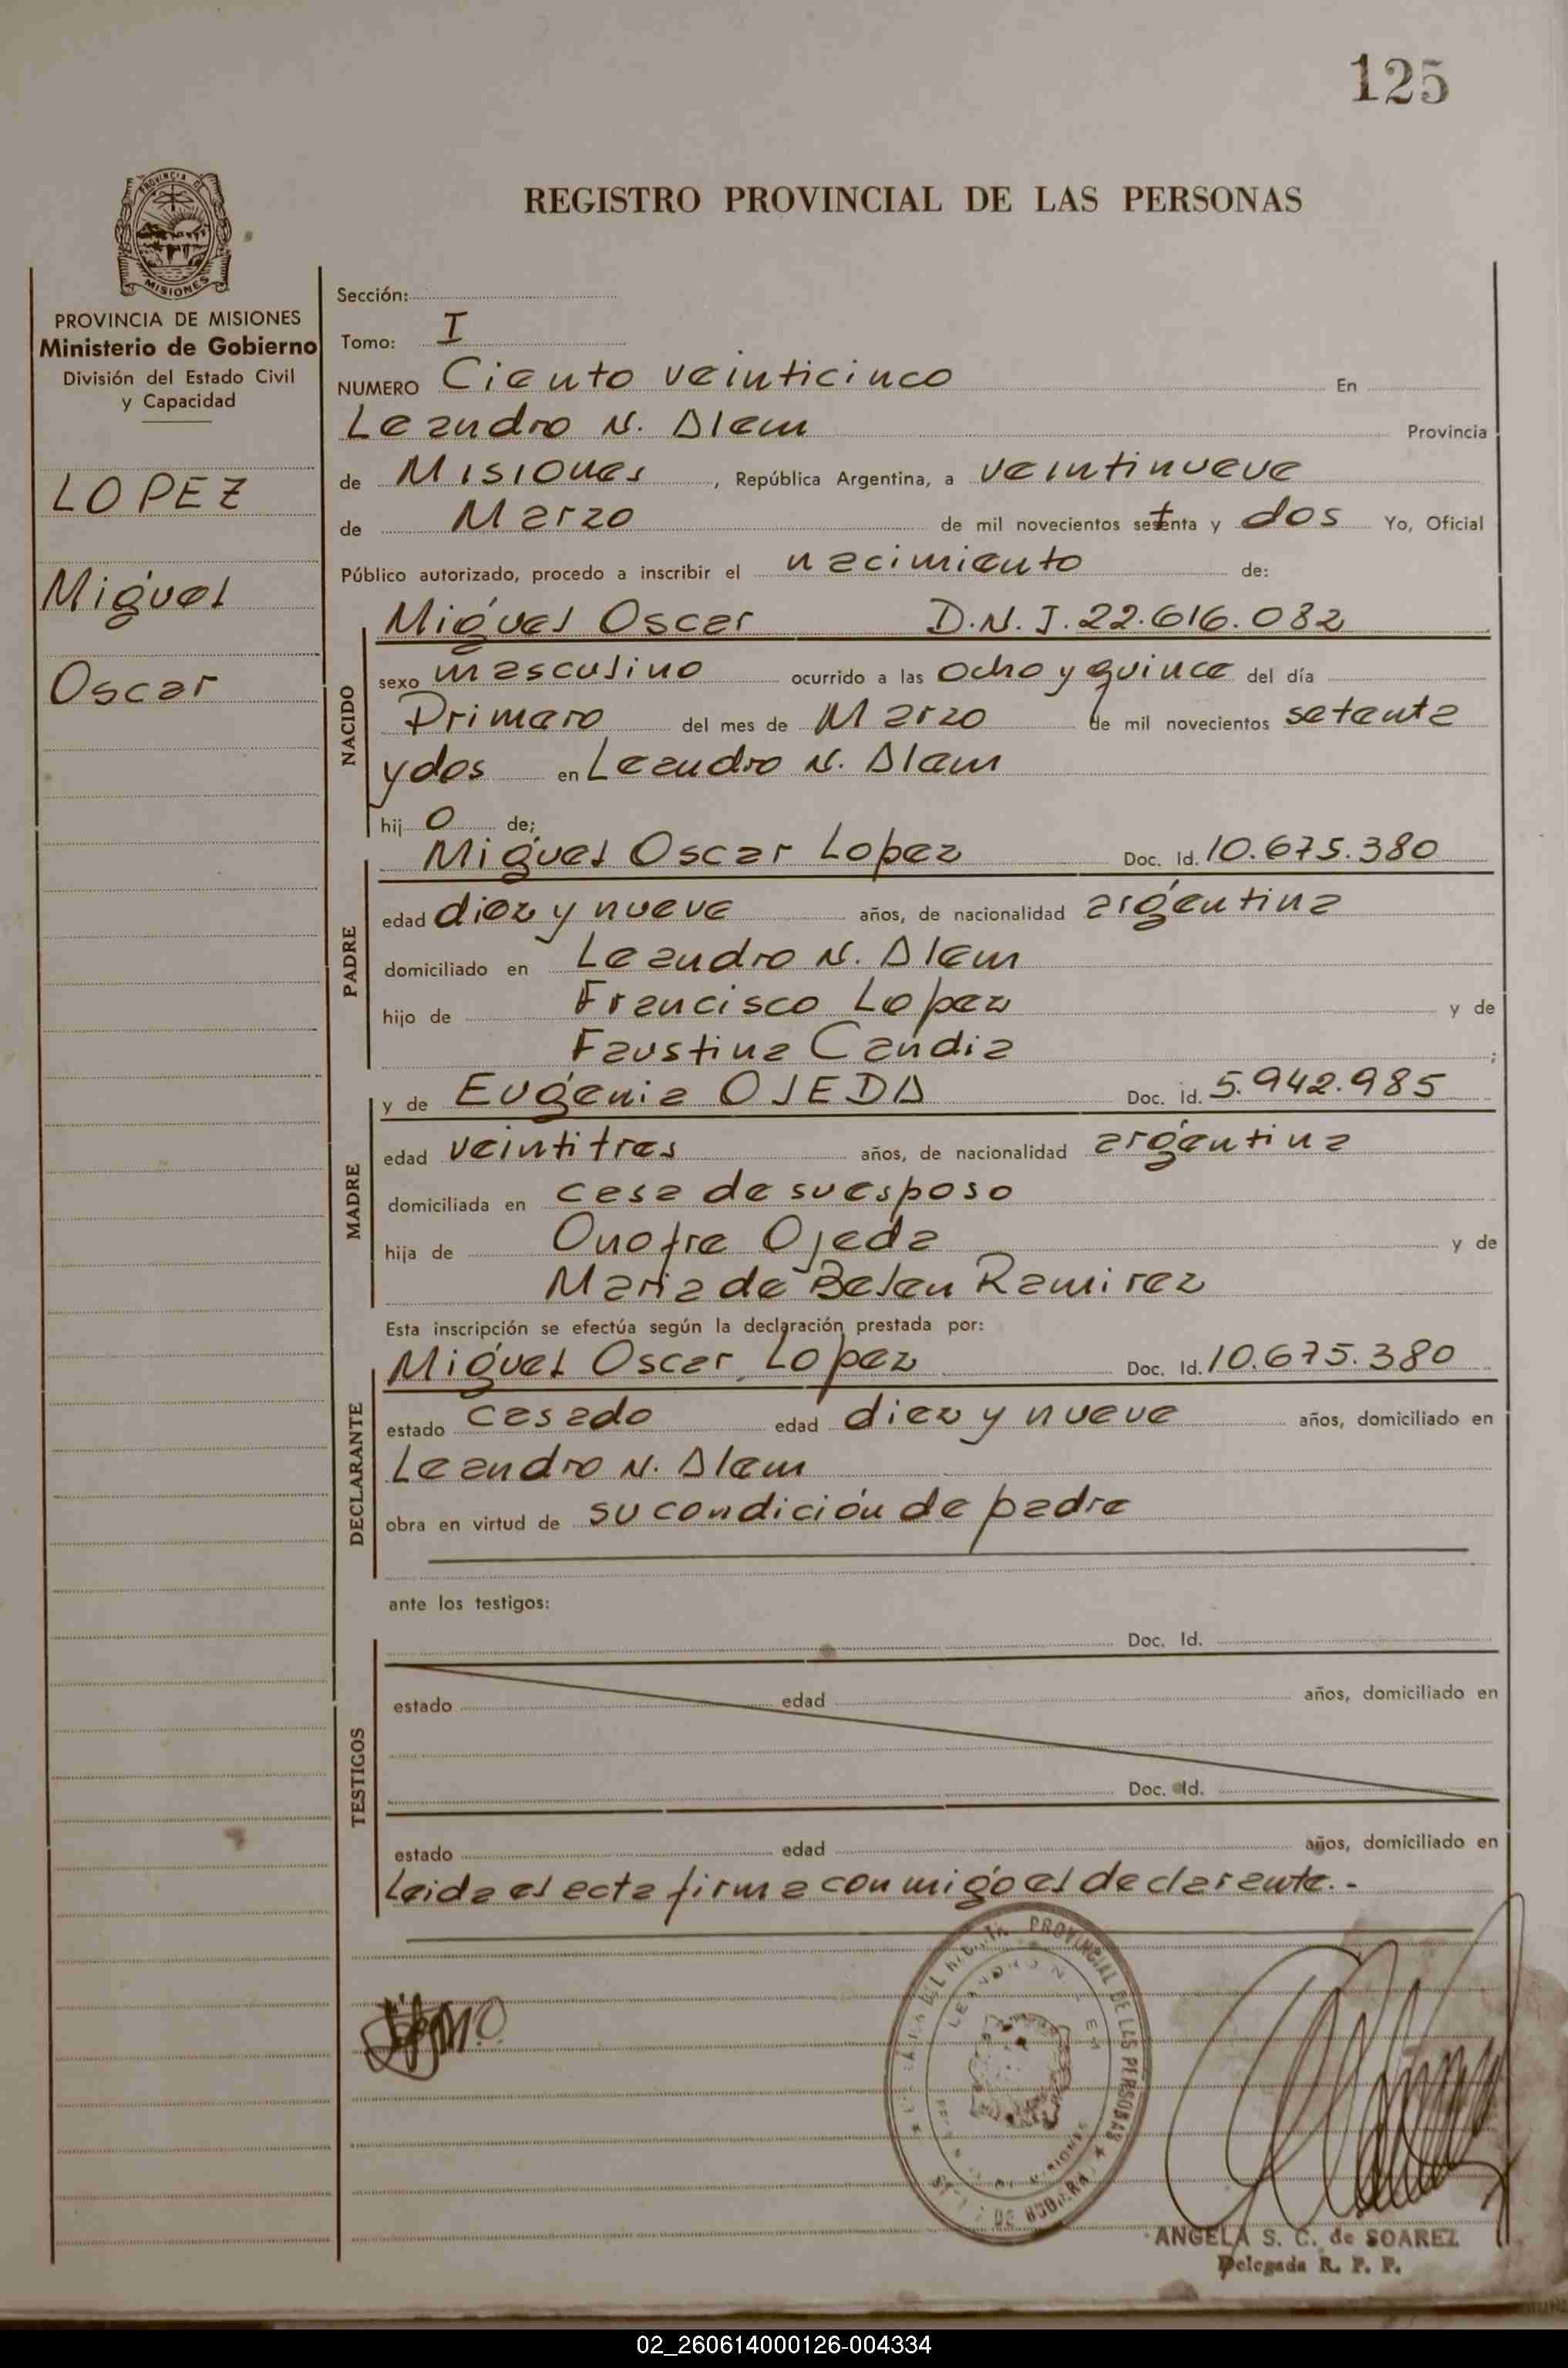 125
REGISTRO PROVINCIAL DE LAS PERSONAS
PROVINCIA DE MISIONES
PROVINCIA DE MISIONES
Ministerio de Gobierno
División del Estado Civil
y Capacidad
LOPEZ
Miguel
Oscar
Sección:
Tomo: I
NUMERO Ciento veinticinco En
Leandro N. Alem Provincia
de Misiones, República Argentina, a veintinueve
de Marzo de mil novecientos setenta y dos Yo, Oficial
Público autorizado, procedo a inscribir el nacimiento de:
Miguel Oscar D.N.I. 22.616.082
NACIDO
sexo masculino ocurrido a las ocho y quince del día
Primero del mes de Marzo de mil novecientos setenta
y dos en Leandro N. Alem
hij o de;
Miguel Oscar Lopez Doc. Id. 10.675.380
PADRE
edad diez y nueve años, de nacionalidad argentina
domiciliado en Leandro N. Alem
hijo de Francisco Lopez y de
Faustina Candia ;
y de Eugenia OJEDA Doc. Id. 5.942.985
MADRE
edad veintitres años, de nacionalidad argentina
domiciliada en casa de su esposo
hija de Onofre Ojeda y de
Maria de Belen Ramirez
Esta inscripción se efectúa según la declaración prestada por:
Miguel Oscar Lopez Doc. Id. 10.675.380
DECLARANTE
estado casado edad diez y nueve años, domiciliado en
Leandro N. Alem
obra en virtud de su condición de padre
ante los testigos:
Doc. Id.
TESTIGOS
estado edad años, domiciliado en
Doc. Id.
estado edad años, domiciliado en
Leida el acta firma conmigo el declarante.-
PROVINCIAL DE LAS PERSONAS
MISIONES
ANGELA S. C. de SOAREZ
Delegada R. P. P.
02_260614000126-004334